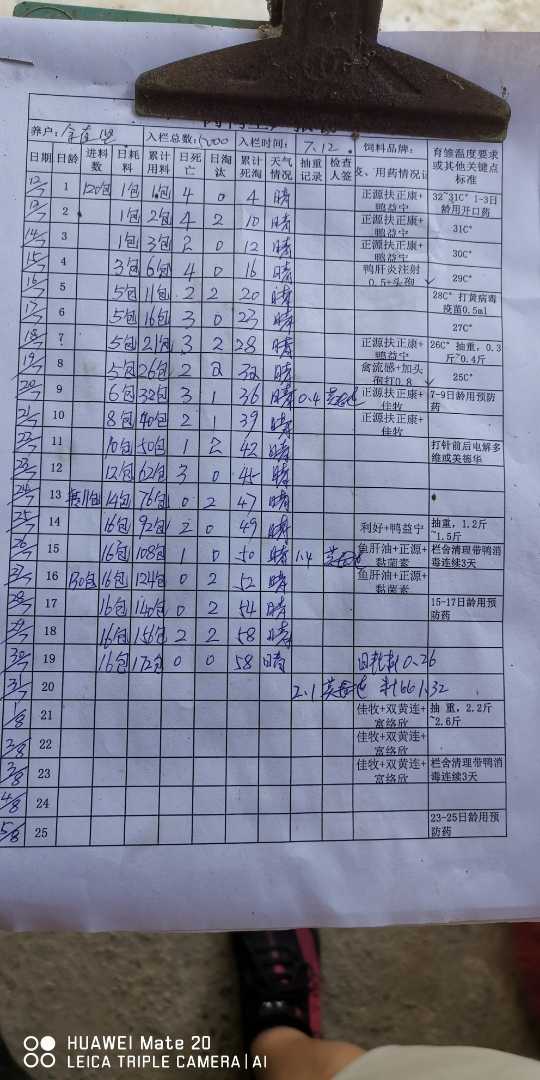 养户: 入栏总数: 5000 入栏时间: 7.12. 饲料品牌: 育雏温度要求或其他关键点标准
日期 日龄 进料数 日耗料 累计用料 日死亡 日淘汰 累计死淘 天气情况 抽重记录 检查人签 用药情况
12/7 1 120包 1包 1包 4 0 4 晴 正源扶正康+鸭益宁 32~31C° 1-3日龄用开口药
13/7 2 1包 2包 4 2 10 晴 正源扶正康+鸭益宁 31C°
14/7 3 1包 3包 2 0 12 晴 正源扶正康+鸭益宁 30C°
15/7 4 3包 6包 4 0 16 晴 鸭肝炎注射0.5+头孢 29C°
16/7 5 5包 11包 2 2 20 晴 28C° 打黄病毒疫苗0.5ml
17/7 6 5包 16包 3 0 23 晴 27C°
18/7 7 5包 21包 3 2 28 晴 正源扶正康+鸭益宁 26C° 抽重，0.3斤~0.4斤
19/7 8 5包 26包 2 2 32 晴 禽流感+加头孢打0.8 25C°
20/7 9 6包 32包 3 1 36 晴 0.4 正源扶正康+佳牧 7-9日龄用预防药
21/7 10 8包 40包 2 1 39 晴 正源扶正康+佳牧
22/7 11 10包 50包 1 2 42 晴 打针前后电解多维或美德华
23/7 12 12包 62包 3 0 45 晴
24/7 13 14包 76包 0 2 47 晴
25/7 14 16包 92包 2 0 49 晴 利好+鸭益宁 抽重，1.2斤~1.5斤
26/7 15 16包 108包 1 0 50 晴 1.4 鱼肝油+正源+黏菌素 栏舍清理带鸭消毒连续3天
27/7 16 130包 16包 124包 0 2 52 晴 鱼肝油+正源+黏菌素
28/7 17 16包 140包 0 2 54 晴 15-17日龄用预防药
29/7 18 16包 156包 2 2 58 晴
30/7 19 16包 172包 0 0 58 晴 日耗料0.26
31/7 20 2.1 料肉1.32
1/8 21 佳牧+双黄连+富络欣 抽 重，2.2斤~2.6斤
2/8 22 佳牧+双黄连+富络欣
3/8 23 佳牧+双黄连+富络欣 栏舍清理带鸭消毒连续3天
4/8 24
5/8 25 23-25日龄用预防药
HUAWEI Mate 20
LEICA TRIPLE CAMERA | AI